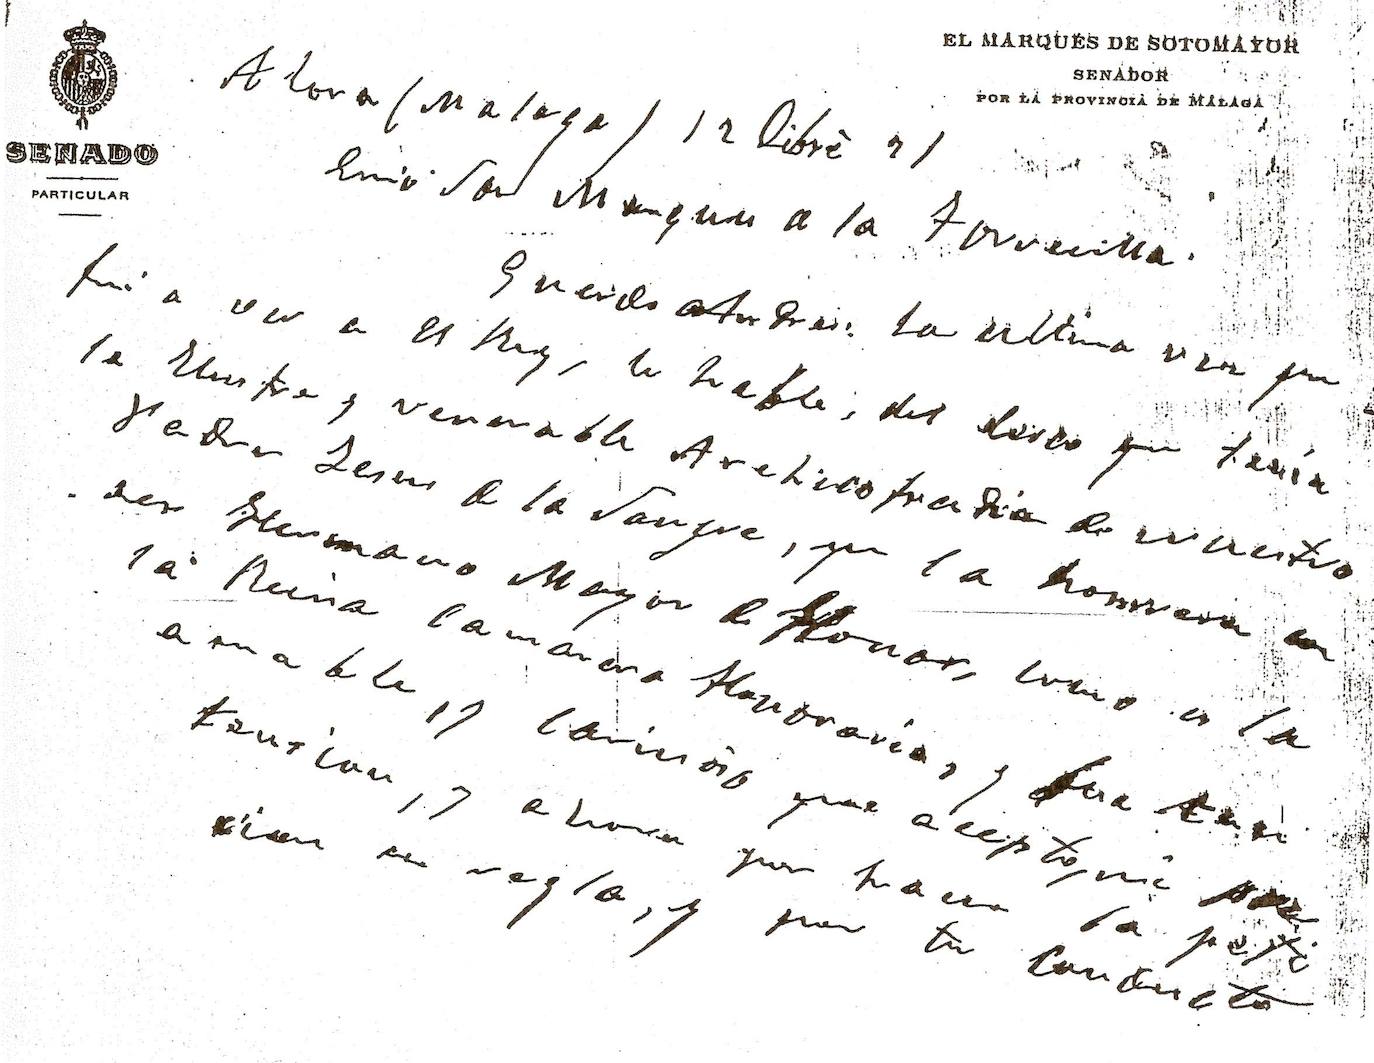 SENADO
PARTICULAR
EL MARQUÉS DE SOTOMAYOR
SENADOR
POR LA PROVINCIA DE MÁLAGA
Alora (Malaga) 12 Dibre 21
Emo Sor Marques de la Torrecilla.
Querido Andres: la ultima vez que
fui a ver a el Rey, le hable, del deseo que tenia
la Ilustre y venerable Archicofradia de nuestro
Padre Jesus de la Sangre, que la honrrara con
ser Hermano Mayor de Honor, como es la
la Reina Camarera Honoraria, y fue tan
amable y cariñoso que acepto mi
tension, y ahora por hacer la peti
cion en regla, y por tu conducto